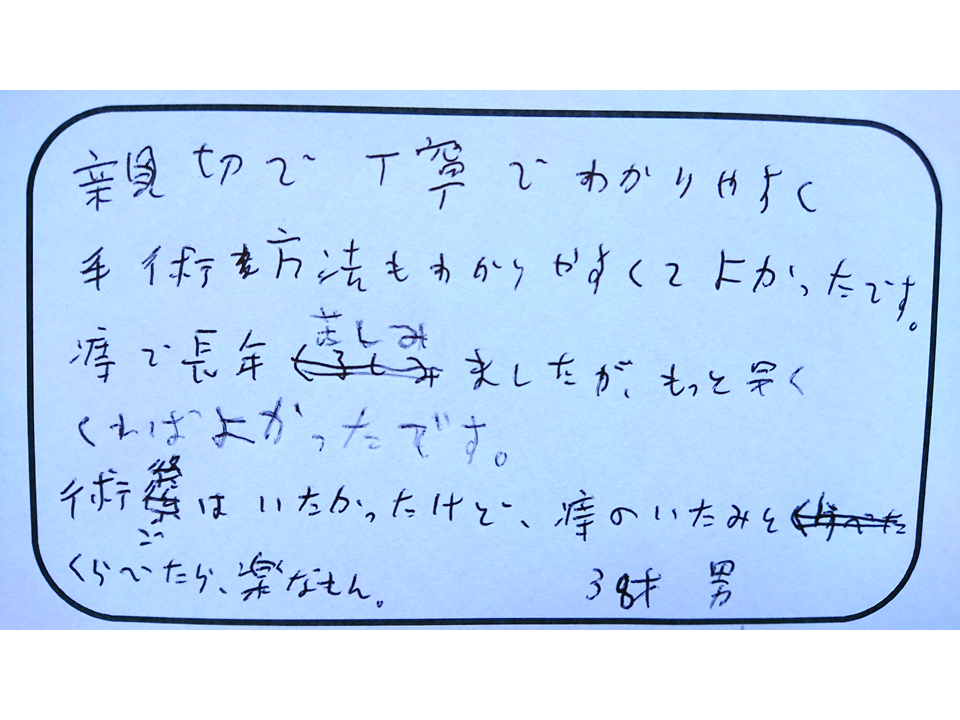 親切で丁寧でわかりやすく
手術方法もわかりやすくてよかったです。
痔で長年苦しみましたが、もっと早く
くればよかったです。
術後はいたかったけど、痔のいたみと
くらべたら、楽なもん。
38才 男